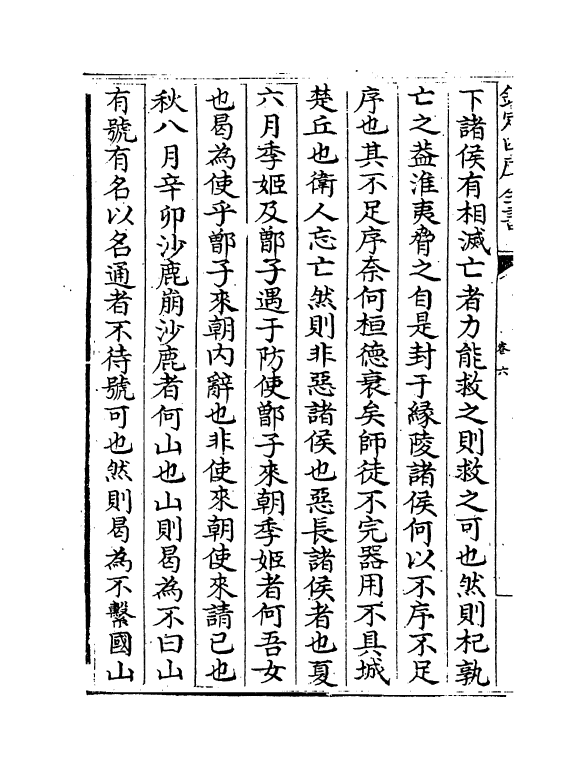 欽定四庫全書
卷六
下諸侯有相滅亡者力能救之則救之可也然則杞孰
亡之葢淮夷脅之自是封于縁陵諸侯何以不序不足
序也其不足序奈何桓德衰矣師徒不完器用不具城
楚丘也衛人忘亡然則非惡諸侯也惡長諸侯者也夏
六月季姬及鄫子遇于防使鄫子來朝季姬者何吾女
也曷為使乎鄫子來朝内辭也非使來朝使來請已也
秋八月辛卯沙鹿崩沙鹿者何山也山則曷為不曰山
有號有名以名通者不待號可也然則曷為不繫國山